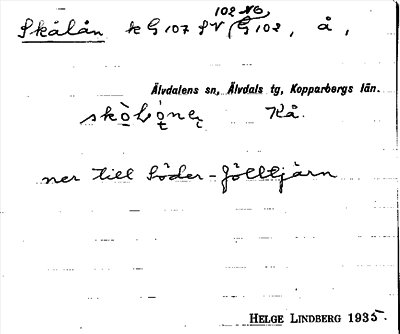 102 NO,
Skålån k G 107 SV G 102, å,
Älvdalens sn, Älvdals tg, Kopparbergs län.
Kå.
ner till Söder-Jölltjärn
HELGE LINDBERG 1935.